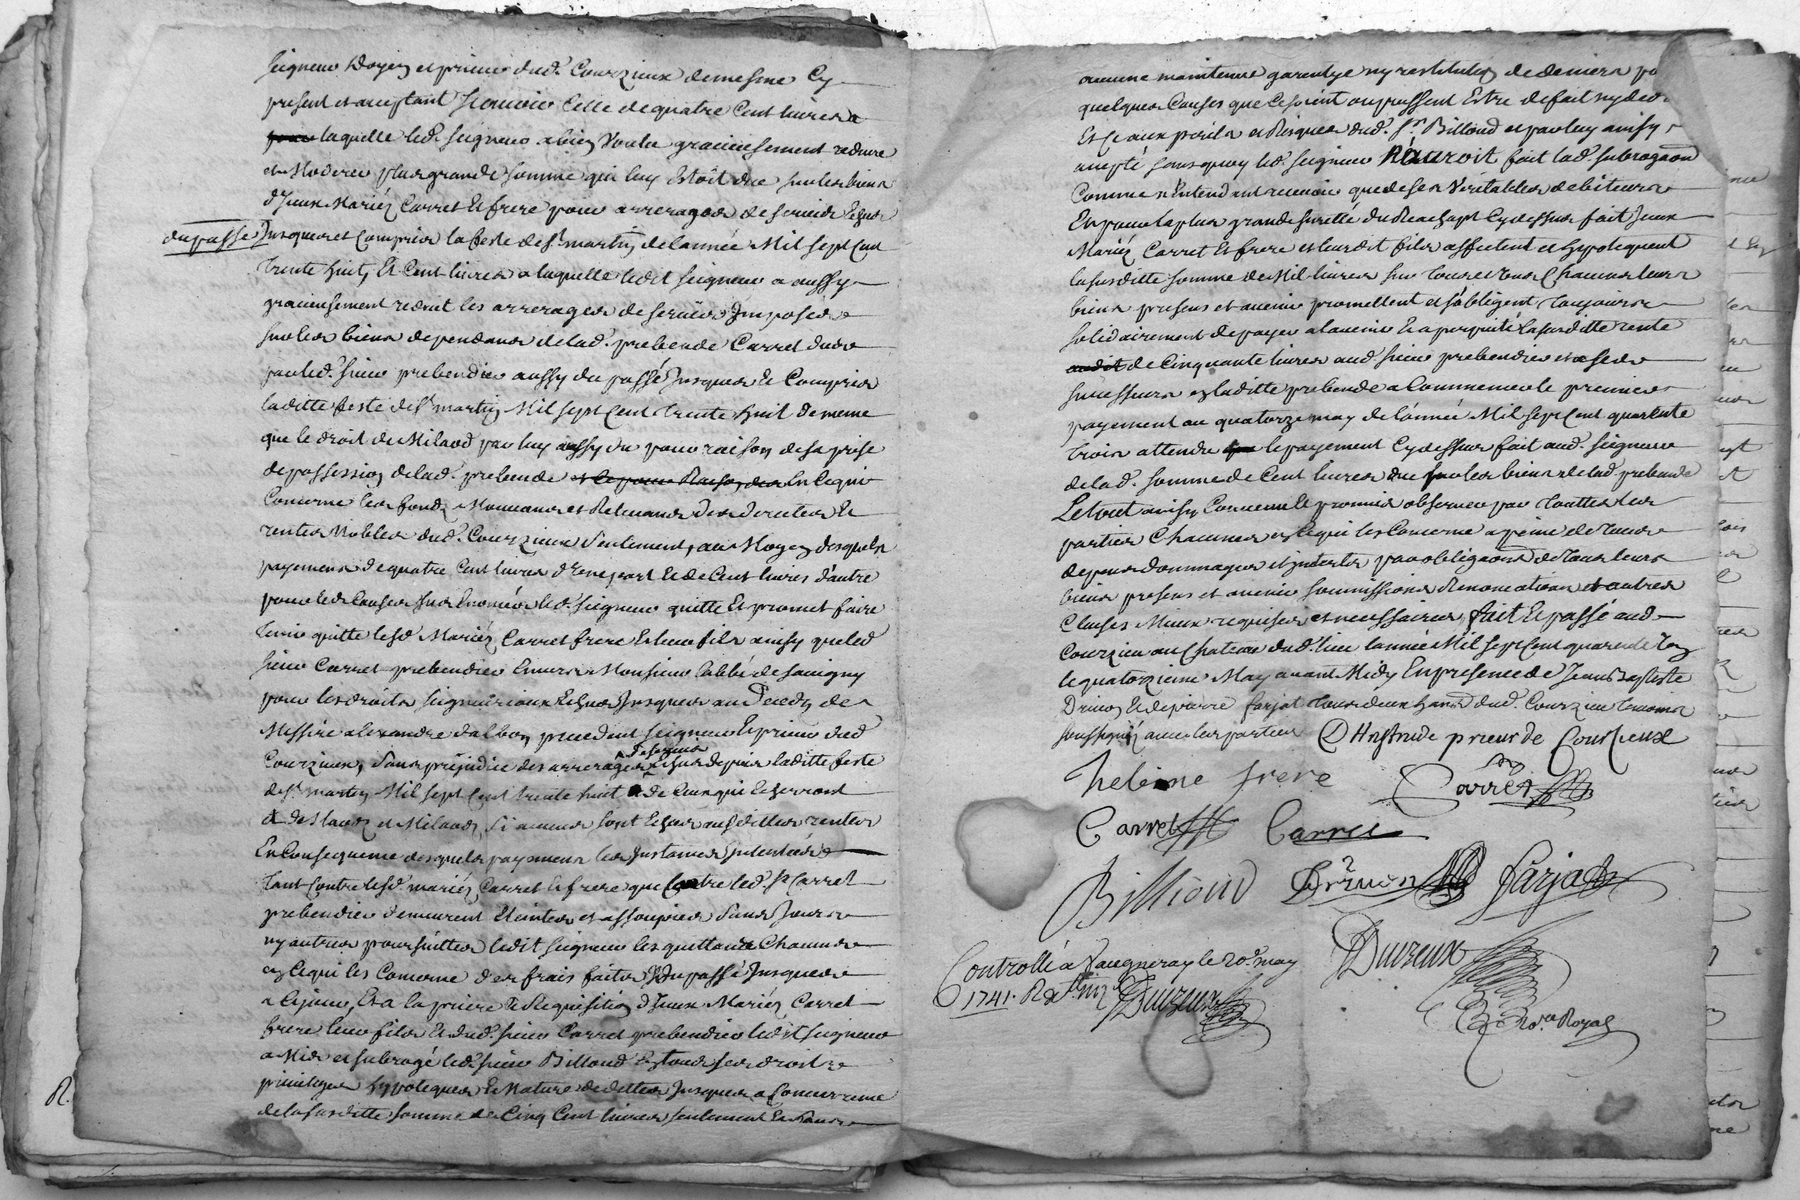 seigneur Doyen et prieur dud. Courzieux demesme Cy
present et acceptant scavoir Celle de quatre Cent livres a
laquelle led. seigneur a bien voulu gracieusement reduire
et Moderer plus grande somme qui luy Estoit due sur les biens
d'Jceux Mariéz Carret et frere pour arrerages de servis Echus
du passé Jusques et Compris la feste de st martin de lannée Mil sept Cent
trente huit, et Cent livres a laquelle ledit seigneur a aussy
gracieusement reduit les arrerages de servis Jmposés
sur les biens dependans de lad. prebende Carret dus
par led. sieur prebendier aussy du passé Jusques et Compris
laditte feste de st martin Mil sept Cent trente huit de meme
que le droit de Milaod par luy aussy du pour raison de sa prise
de possession de lad. prebende et Ce pour Raison des En Cequi
Concerne les fonds Mouvans et Relevans des directes et
rentes Nobles dud. Courzieux seulement, au Moyen desquels
payemens de quatre Cent livres d'Une part et de Cent livres d'autre
pour les Causes sus Enoncés led. seigneur quitte Et promet faire
tenir quitte lesd. Mariéz Carret frere et leur fils ainsy que led.
sieur Carret prebendier Envers Monsieur l'abbé de savigny
pour les droits seigneuriaux Echus Jusques au Decedz de
Messire alexandre d'albon precedent seigneur et prieur dud.
Courzieux, sans prejudice des arrerages de servis Echus depuis laditte feste
de st martin Mil sept Cent trente huit & de Ceux qui Echerront
& de slaods et Milaods si aucuns sont Echus aus dittes rentes
En Consequence desquels payemens les Jnstances Jntentées
tant Contre lesd. mariéz Carret et frere que Contre led. sr Carret
prebendier demeurent Eteintes et assoupies sans Jceux
ny autres poursuittes ledit seigneur les quittans Chacuns
en Cequi les Concerne d'es frais faits du passé Jusques
a Cejour, Et a la priere et Requisition d'Jceux Mariéz Carret
frere leur fils et dud. sieur Carret prebendier ledit seigneur
a Mis et subrogé led. sieur Billoud En tous ses droits
privileges hypoteques et Nature de dettes Jusques a Concurrence
de la susditte somme de Cinq Cent livres seulement Et sans
aucune maintenue garentye ny restitution de deniers
quelques Causes que Ce soient ou pussent Estre de fait ny de
Et Ce aux perils et Risques dud. sr. Billoud et par luy ainsy
accepté sans quoy led. seigneur N'auroit fait lad. subrogaon
Comme n'Entendant recevoir que de ses Veritables debiteurs
Et pour la plus grande sureté du Reachapt Cy dessus fait Jceux
Mariéz Carret et frere et leurdit fils affectent et hypotequent
la susditte somme de Mil livres sur tous et Uns Chacuns leurs
biens presens et avenir promettent et s'obligent toujours
solidairement de payer a lavenir et a perpetuité la susditte rente
audit de Cinquante livres aud. sieur prebendier et a ses
successeurs en laditte prebende a Commencer le premier
payement au quatorze may de l'année Mil sept Cent quarente
trois attendu que le payement Cy dessus fait aud. seigneur
de lad. somme de Cent livres due sur les biens de lad. prebende
Le tout ainsy Convenu Et promis observer par touttes les
parties Chacunes en Cequi les Concerne a peine de tous
depens dommages et jnterests par obligaons de tous leurs
biens presens et avenir soumissions Renonciations et autres
Clauses Mieux requises et necessaires, fait Et passé aud.
Courzieu au Chateau dud. lieu lannée Mil sept Cent quarente Un
le quatorzieme May avant Midy En presence de Jean Baptiste
Drivon Et de pierre farjat tous deux habns dud. Courzieu temoins
soussignéz avec les parties DHostude prieur de Courzieux
helene frere Carret
Carret Carret
Billioud Drivon farjat
Controllé à Vaugneray le 20e. may Duvzeux
1741. R
No.re Royal